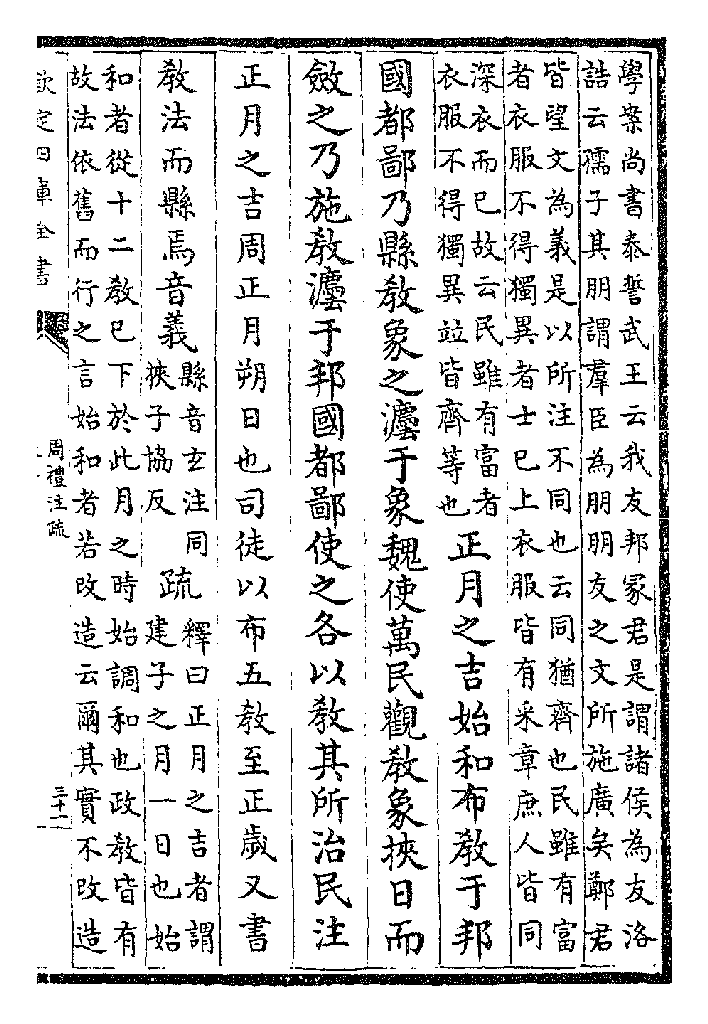 學案尚書泰誓武王云我友邦冢君是謂諸侯為友洛
誥云孺子其朋謂羣臣為朋朋友之文所施廣矣鄭君
皆望文為義是以所注不同也云同猶齊也民雖有富
者衣服不得獨異者士已上衣服皆有采章庶人皆同
深衣而已故云民雖有富者
衣服不得獨異竝皆齊等也
正月之吉始和布教于邦
國都鄙乃縣教象之灋于象魏使萬民觀教象挾日而
斂之乃施教灋于邦國都鄙使之各以教其所治民注
正月之吉周正月朔日也司徒以布五教至正歲又書
教法而縣焉音義
縣音玄注同
挾子協反
疏
釋曰正月之吉者謂
建子之月一日也始
和者從十二教已下於此月之時始調和也政教皆有
故法依舊而行之言始和者若改造云爾其實不改造
欽定四庫全書
周禮注疏
三十一